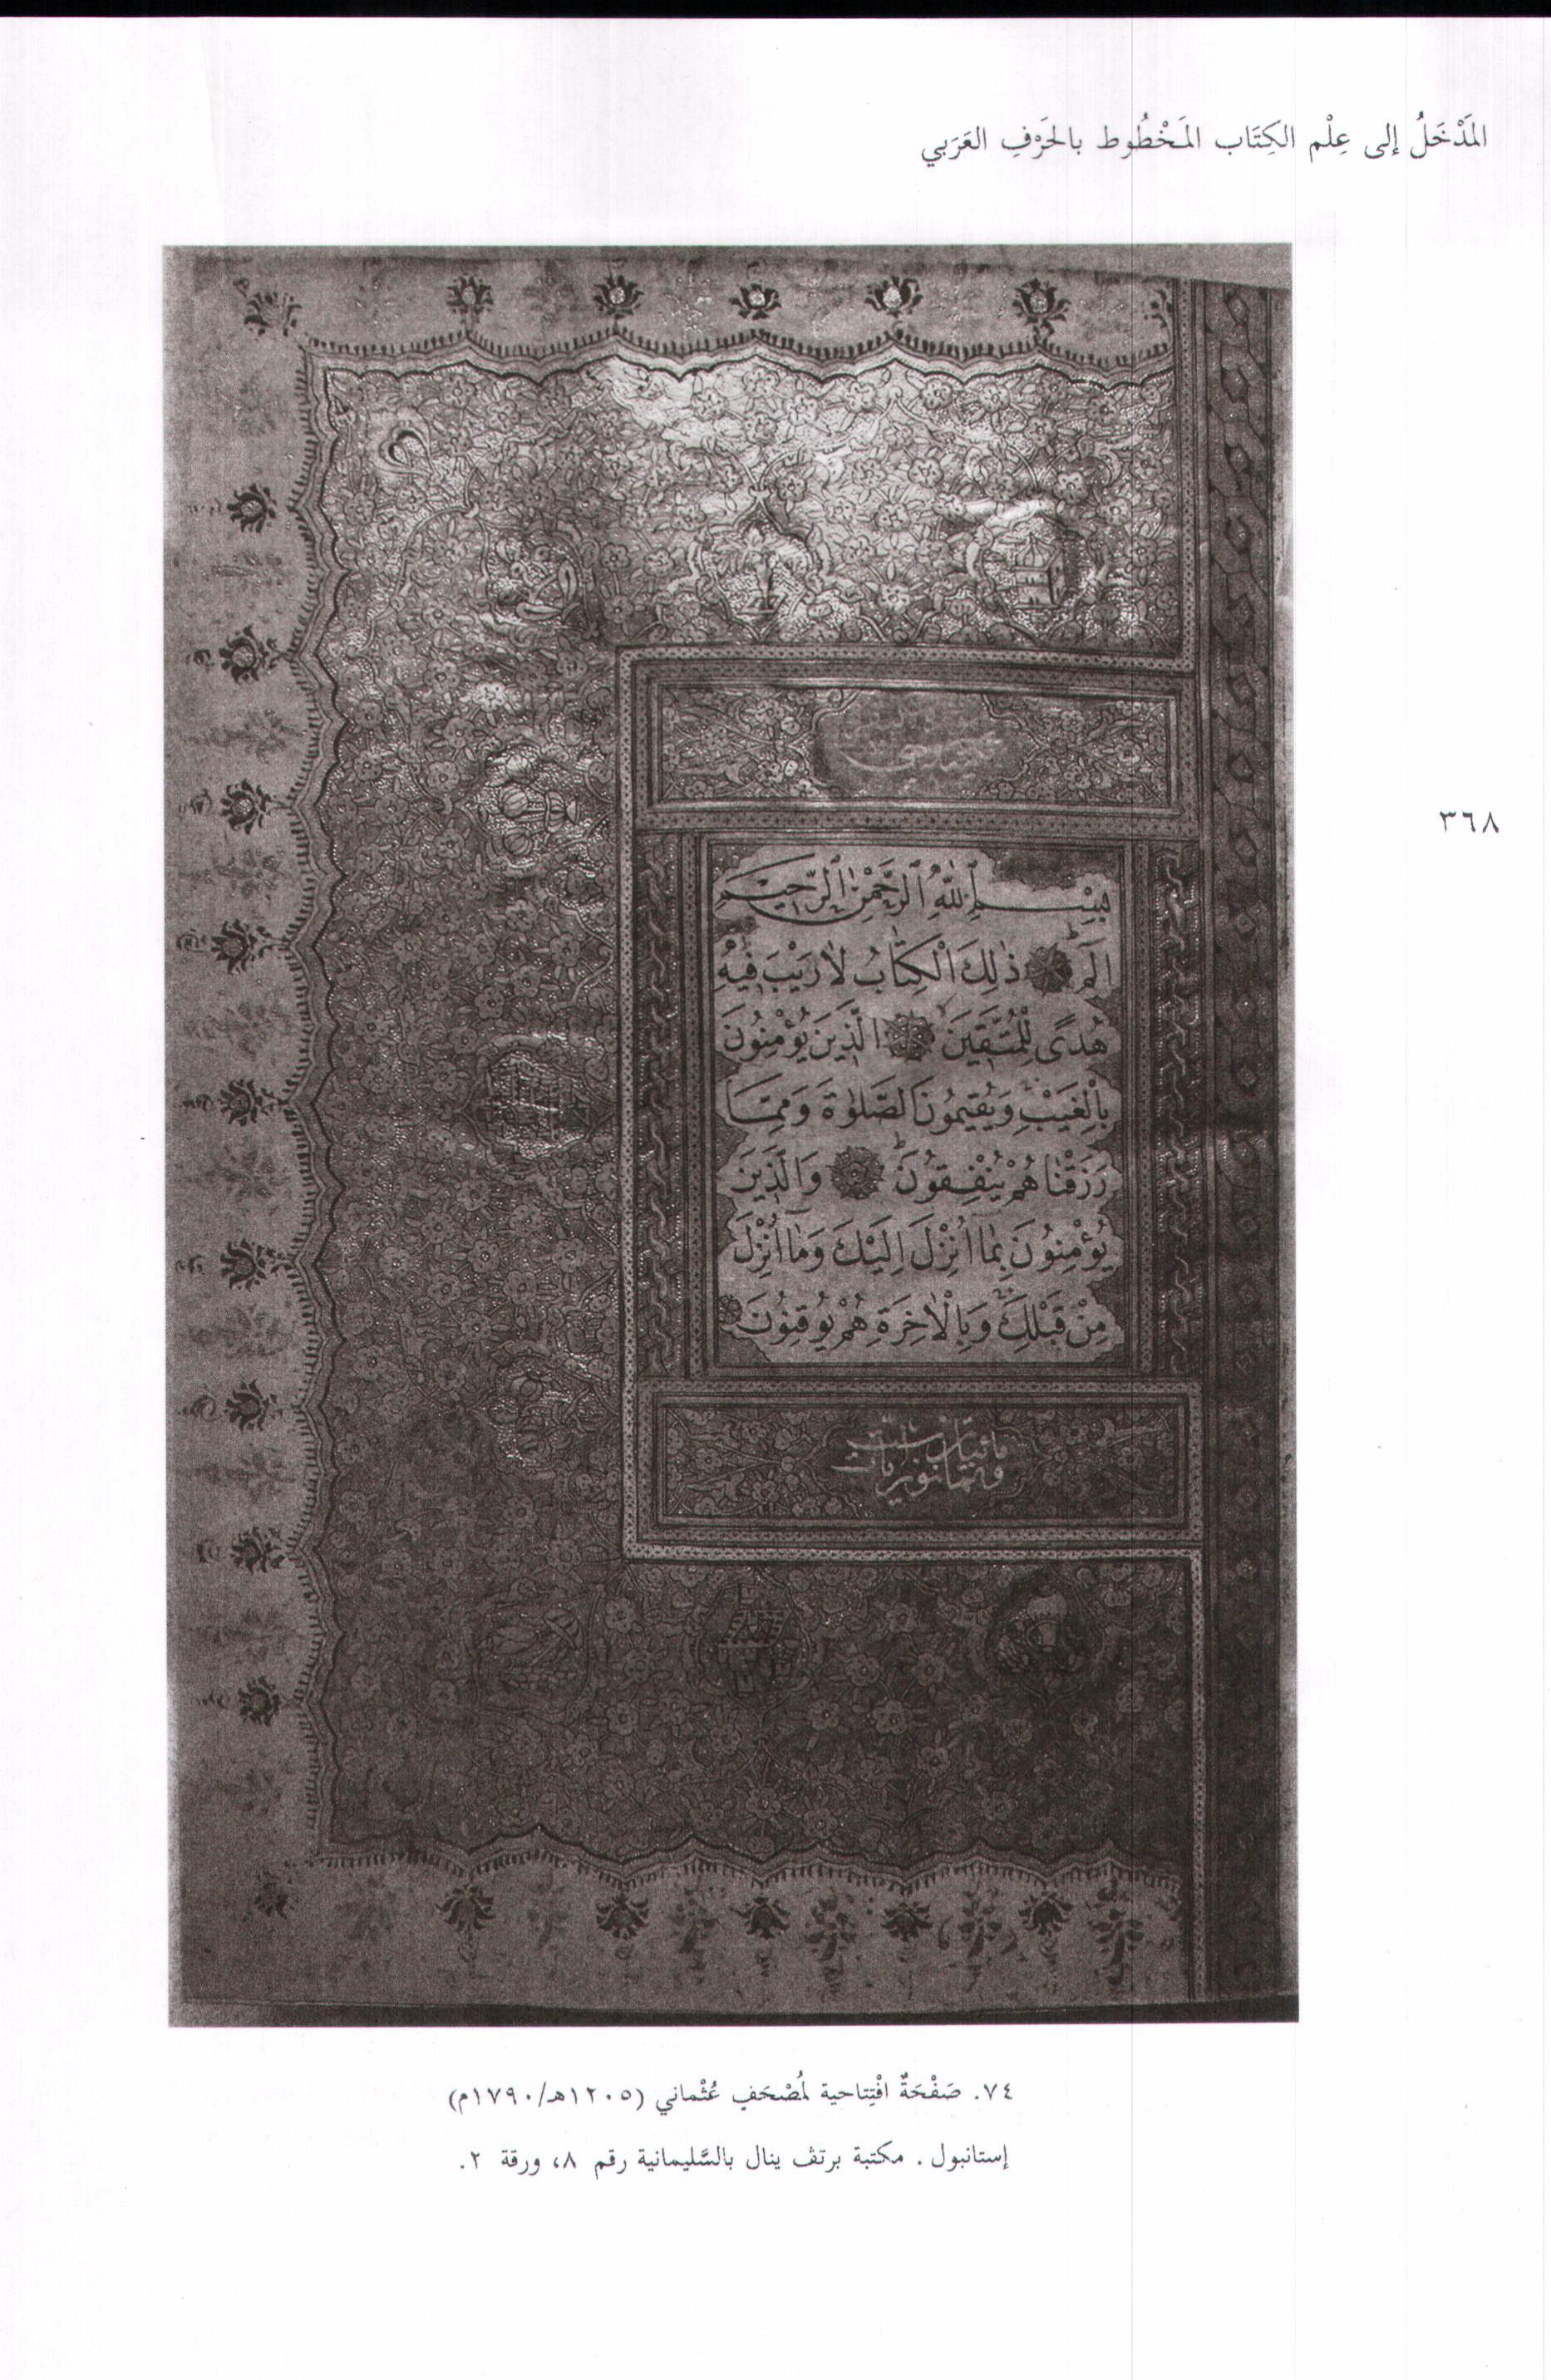 المَدْخَلُ إلى عِلْم الكِتَاب المَخْطُوط بالحَرْفِ العَرَبي
٣٦٨
بِسْمِ ٱللّٰهِ ٱلرَّحْمٰنِ ٱلرَّحِيمِ
الٓمٓ ذٰلِكَ الْكِتَابُ لَا رَيْبَ فِيهِ
هُدًى لِلْمُتَّقِينَ الَّذِينَ يُؤْمِنُونَ
بِالْغَيْبِ وَيُقِيمُونَ الصَّلٰوةَ وَمِمَّا
رَزَقْنَاهُمْ يُنْفِقُونَ وَالَّذِينَ
يُؤْمِنُونَ بِمَا اُنْزِلَ اِلَيْكَ وَمَا اُنْزِلَ
مِنْ قَبْلِكَ وَبِالْاٰخِرَةِ هُمْ يُوقِنُونَ
٧٤. صَفْحَةٌ افْتِتاحية لمُصْحَفٍ عُثْماني (١٢٠٥هـ/١٧٩٠م)
إستانبول. مكتبة برتڤ ينال بالسَّليمانية رقم ٨، ورقة ٢.